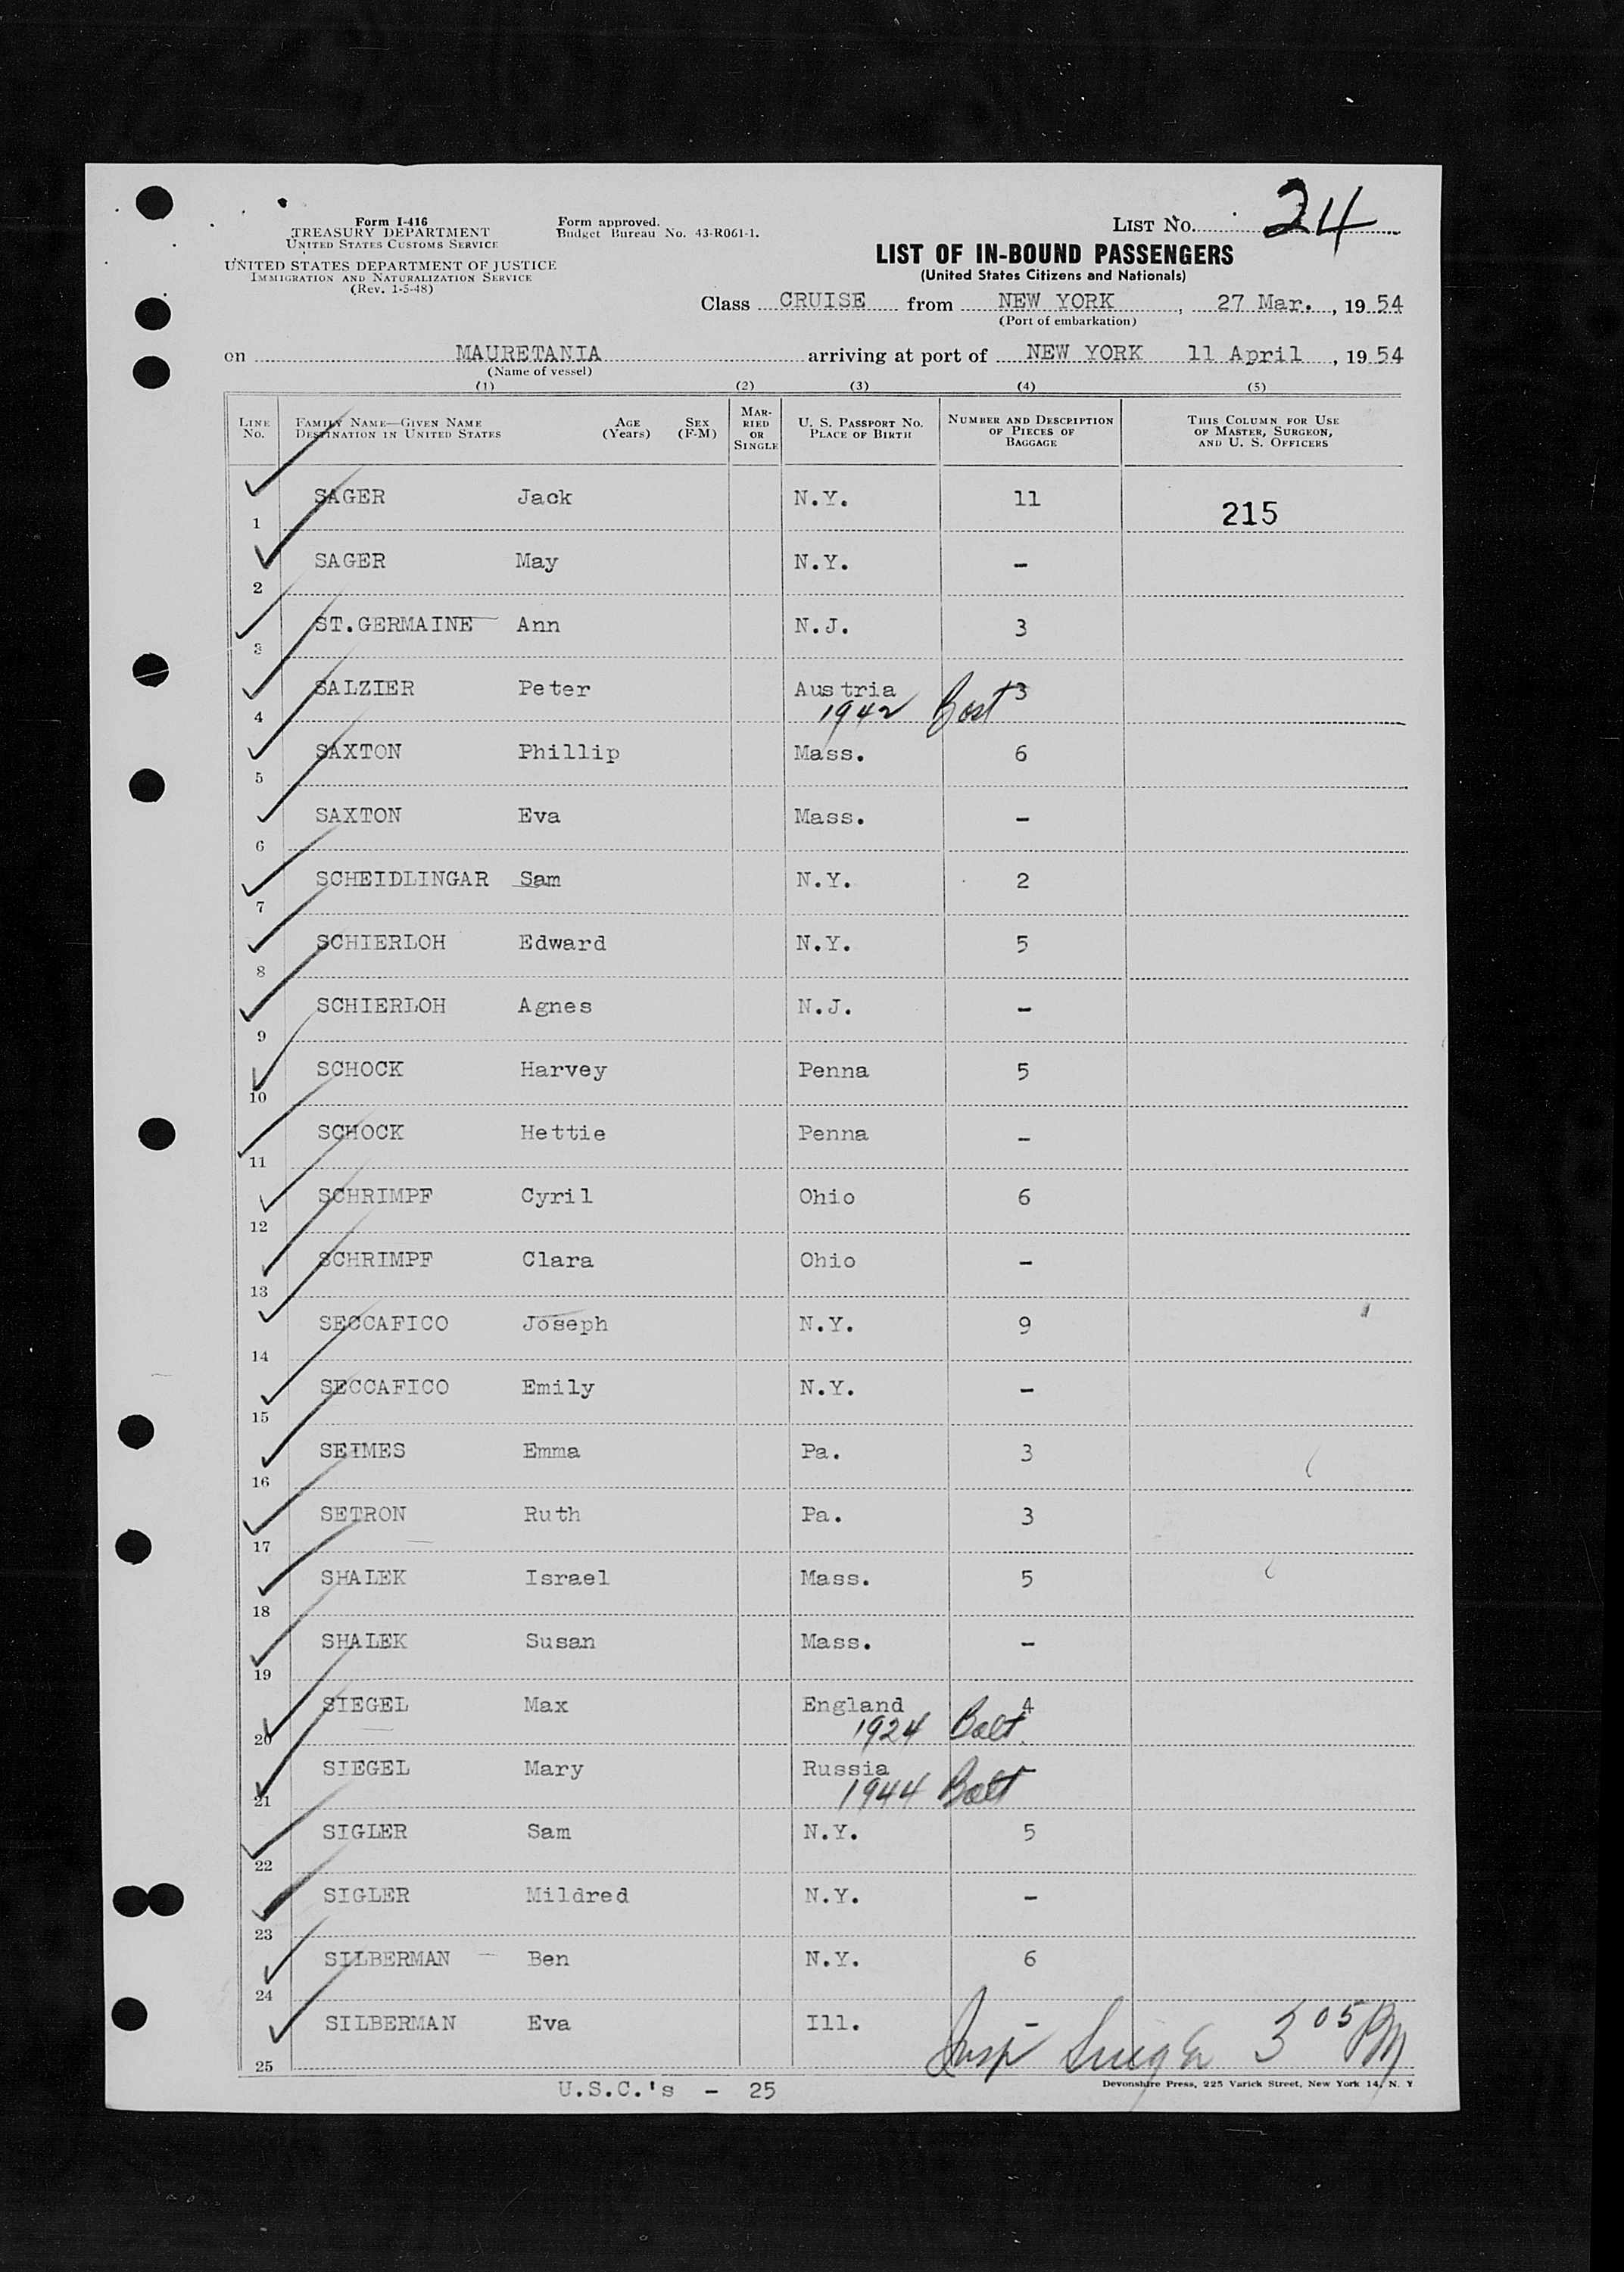 Form I-416
TREASURY DEPARTMENT
UNITED STATES CUSTOMS SERVICE
UNITED STATES DEPARTMENT OF JUSTICE
IMMIGRATION AND NATURALIZATION SERVICE
(Rev. 1-5-48)
Form approved.
Budget Bureau No. 43-R061-1.
LIST No. 24
LIST OF IN-BOUND PASSENGERS
(United States Citizens and Nationals)
Class CRUISE from NEW YORK, 27 Mar., 1954
(Port of embarkation)
on MAURETANIA arriving at port of NEW YORK 11 April, 1954
(Name of vessel)
(1) (2) (3) (4) (5)
LINE No. FAMILY NAME—GIVEN NAME DESTINATION IN UNITED STATES AGE (Years) SEX (F-M) MARRIED OR SINGLE U. S. PASSPORT NO. PLACE OF BIRTH NUMBER AND DESCRIPTION OF PIECES OF BAGGAGE THIS COLUMN FOR USE OF MASTER, SURGEON, AND U. S. OFFICERS
1 SAGER Jack N.Y. 11 215
2 SAGER May N.Y. -
3 ST.GERMAINE Ann N.J. 3
4 SALZIER Peter Austria 3
1942 Bost
5 SAXTON Phillip Mass. 6
6 SAXTON Eva Mass. -
7 SCHEIDLINGAR Sam N.Y. 2
8 SCHIERLOH Edward N.Y. 5
9 SCHIERLOH Agnes N.J. -
10 SCHOCK Harvey Penna 5
11 SCHOCK Hettie Penna -
12 SCHRIMPF Cyril Ohio 6
13 SCHRIMPF Clara Ohio -
14 SECCAFICO Joseph N.Y. 9
15 SECCAFICO Emily N.Y. -
16 SEIMES Emma Pa. 3
17 SETRON Ruth Pa. 3
18 SHALEK Israel Mass. 5
19 SHALEK Susan Mass. -
20 SIEGEL Max England 4
1924 Balt
21 SIEGEL Mary Russia -
1944 Balt
22 SIGLER Sam N.Y. 5
23 SIGLER Mildred N.Y. -
24 SILBERMAN Ben N.Y. 6
25 SILBERMAN Eva Ill. -
Insp 3 05 PM
U.S.C.'s - 25
Devonshire Press, 225 Varick Street, New York 14, N. Y